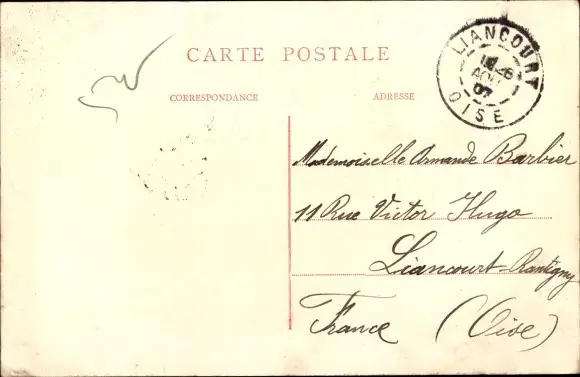 CARTE POSTALE
CORRESPONDANCE
ADRESSE
LIANCOURT
AOU
07
OISE
Mademoiselle Armande Barbier
11 Rue Victor Hugo
Liancourt-Rantigny
France (Oise)